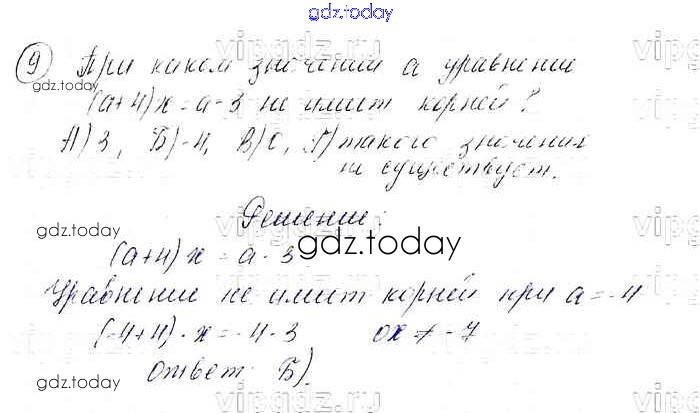 gdz.today
9 При каком значении а уравнение
(а+4)x=а-3 не имеет корней?
А) 3, Б) -4, В) 0, Г) такого значения
не существует.
gdz.today
Решение:
gdz.today
(а+4)x=а-3
gdz.today
Уравнение не имеет корней при а=-4
(-4+4)·x=-4-3 0x≠-7
gdz.today
Ответ: Б).
gdz.today